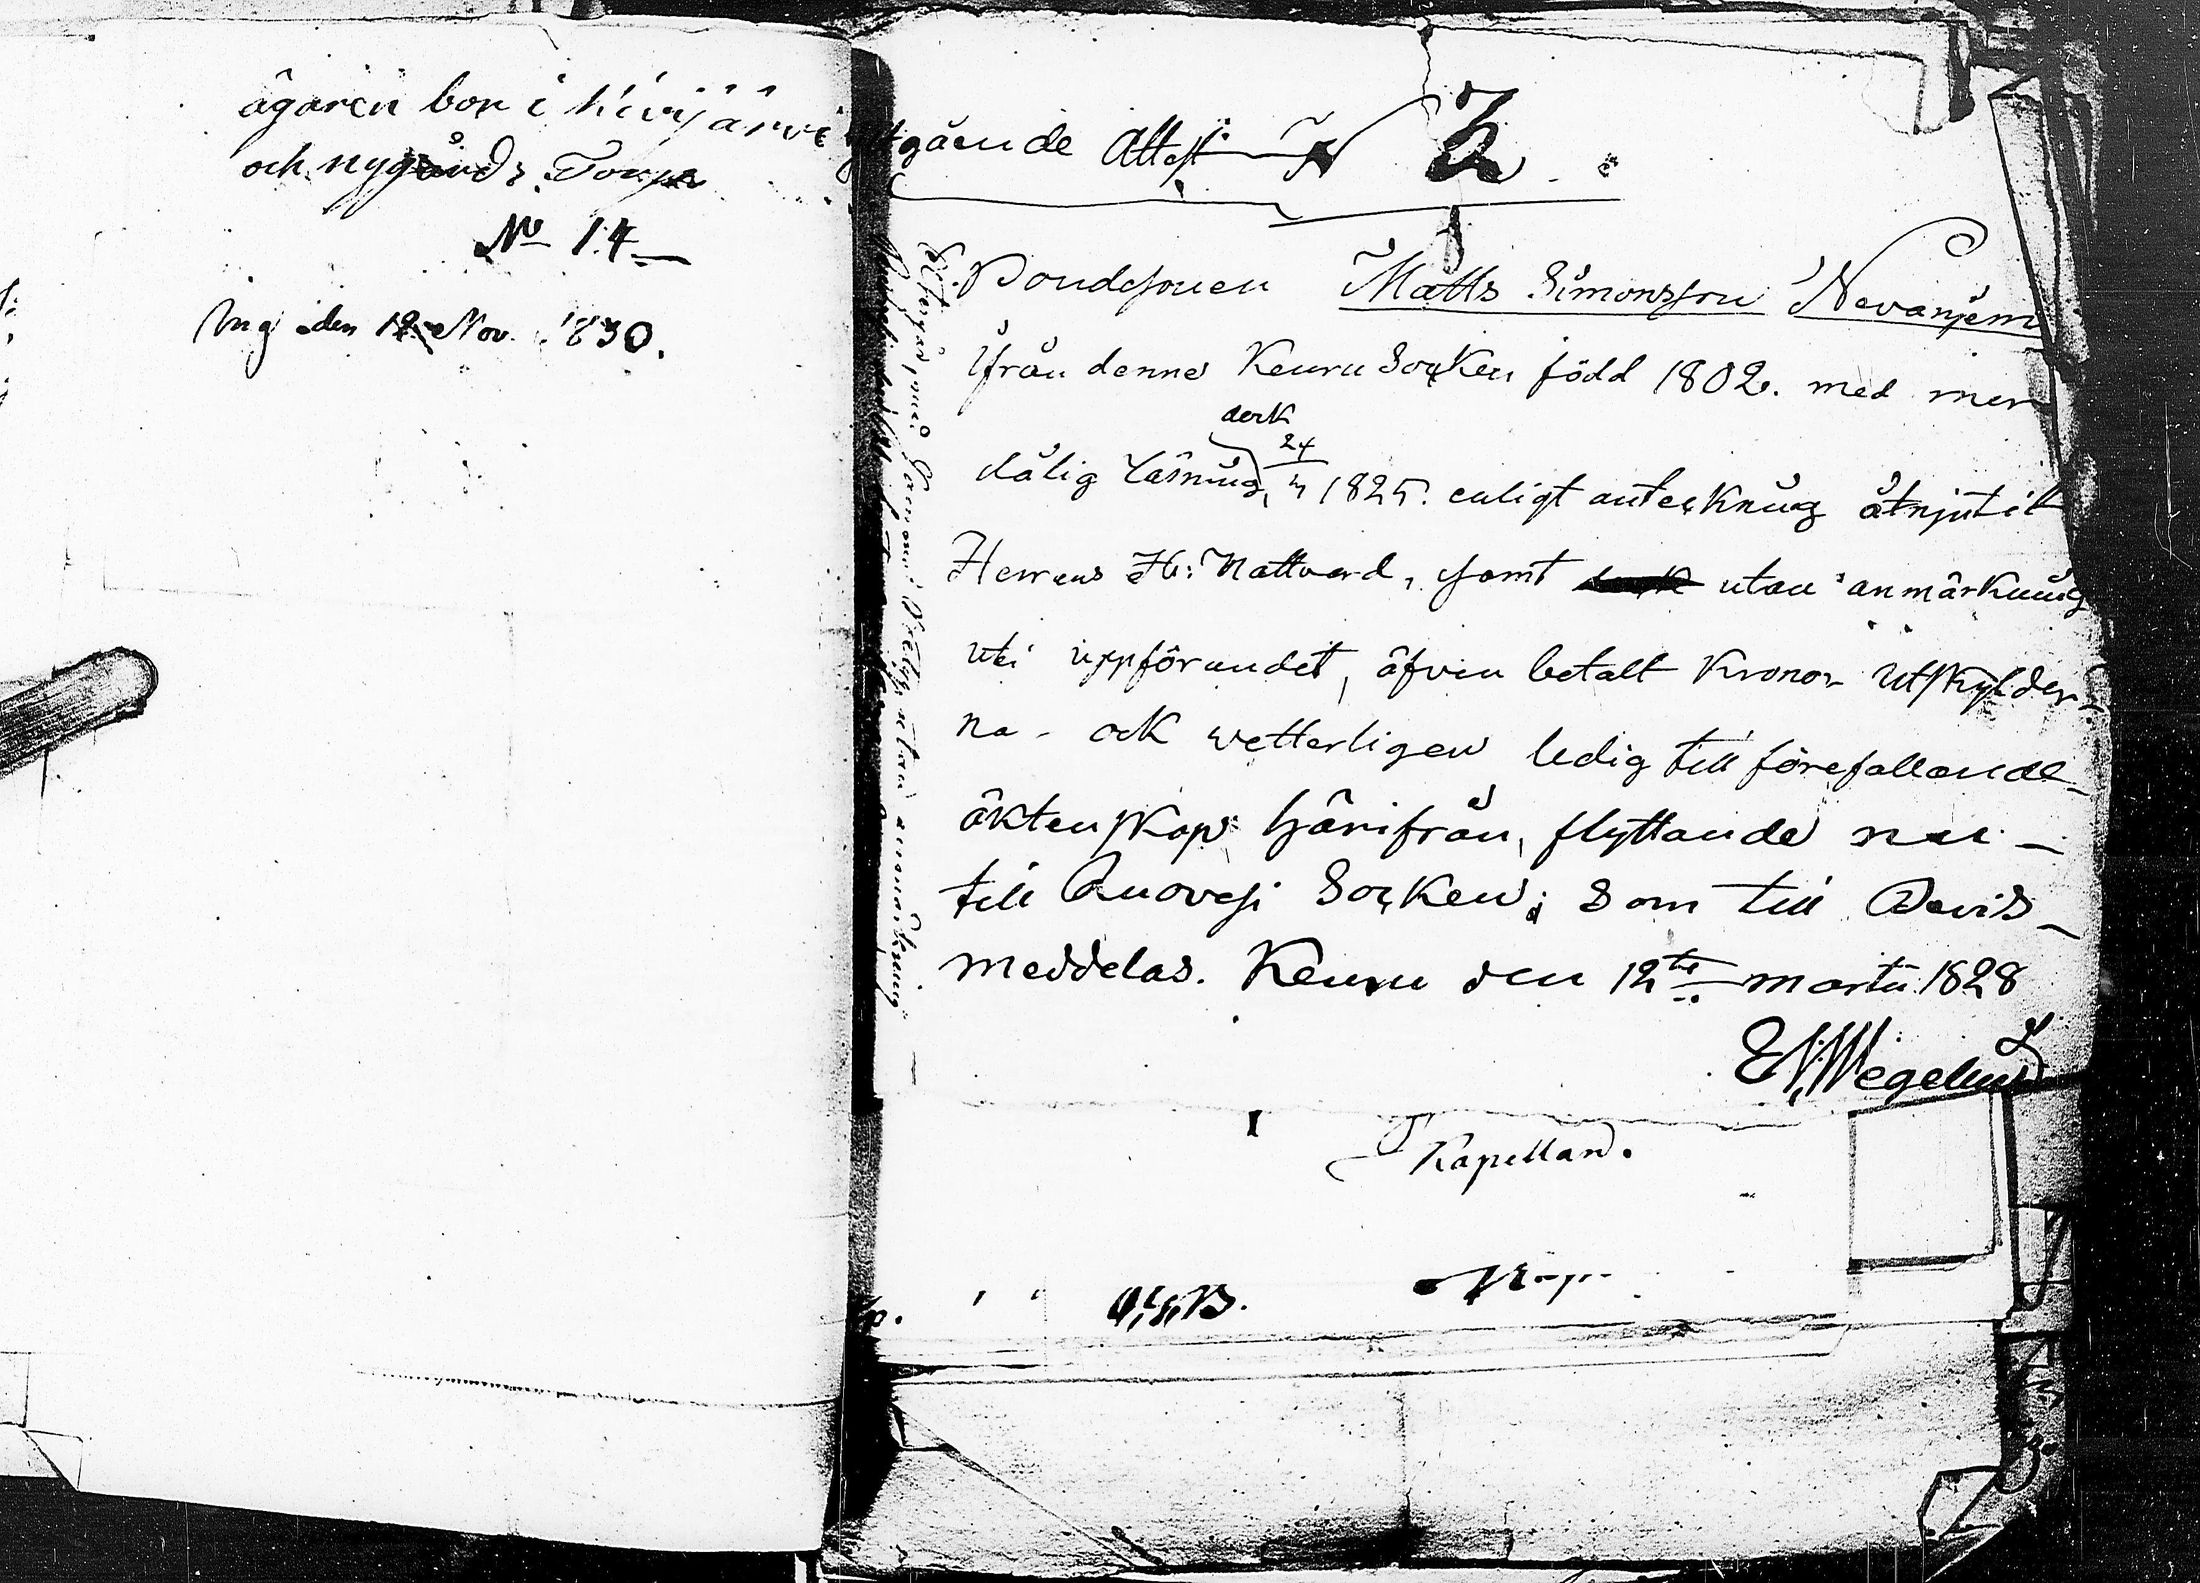 ägaren bor i Kivijärvi
och nygårds Torpa
No 14
Ing den 12 Nov. 1830.
Utgående Attest N 3.
Bondesonen Matts Simonsson Nevaniemi
ifrån denne Keuru Socken född 1802. med mer
dålig läsning, och 24/4 1825. enligt anteckning åtnjutit
Herrens H: Nattvard, samt utan anmärkning
uti uppförandet, äfven betalt Kronor Utskylder
na - ock vetterligen ledig till förefallande
äktenskap härifrån, flyttande nu
till Ruovesi Socken; som till Bevis
meddelas. Keuru den 12te martii 1828
E. Wegelius
Kapellan.
utan anmärkning